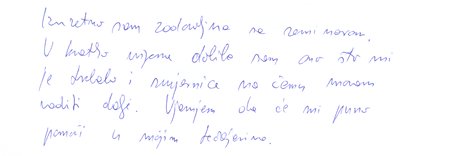 Izuzetno sam zadovoljna sa seminarom.
U kratko vrijeme dobila sam ono što mi
je trebalo i smjernice na čemu moram
raditi dalje. Vjerujem da će mi puno
pomoći u mojim težnjama.